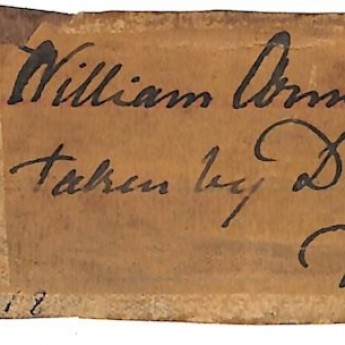 William Orm
taken by D
18